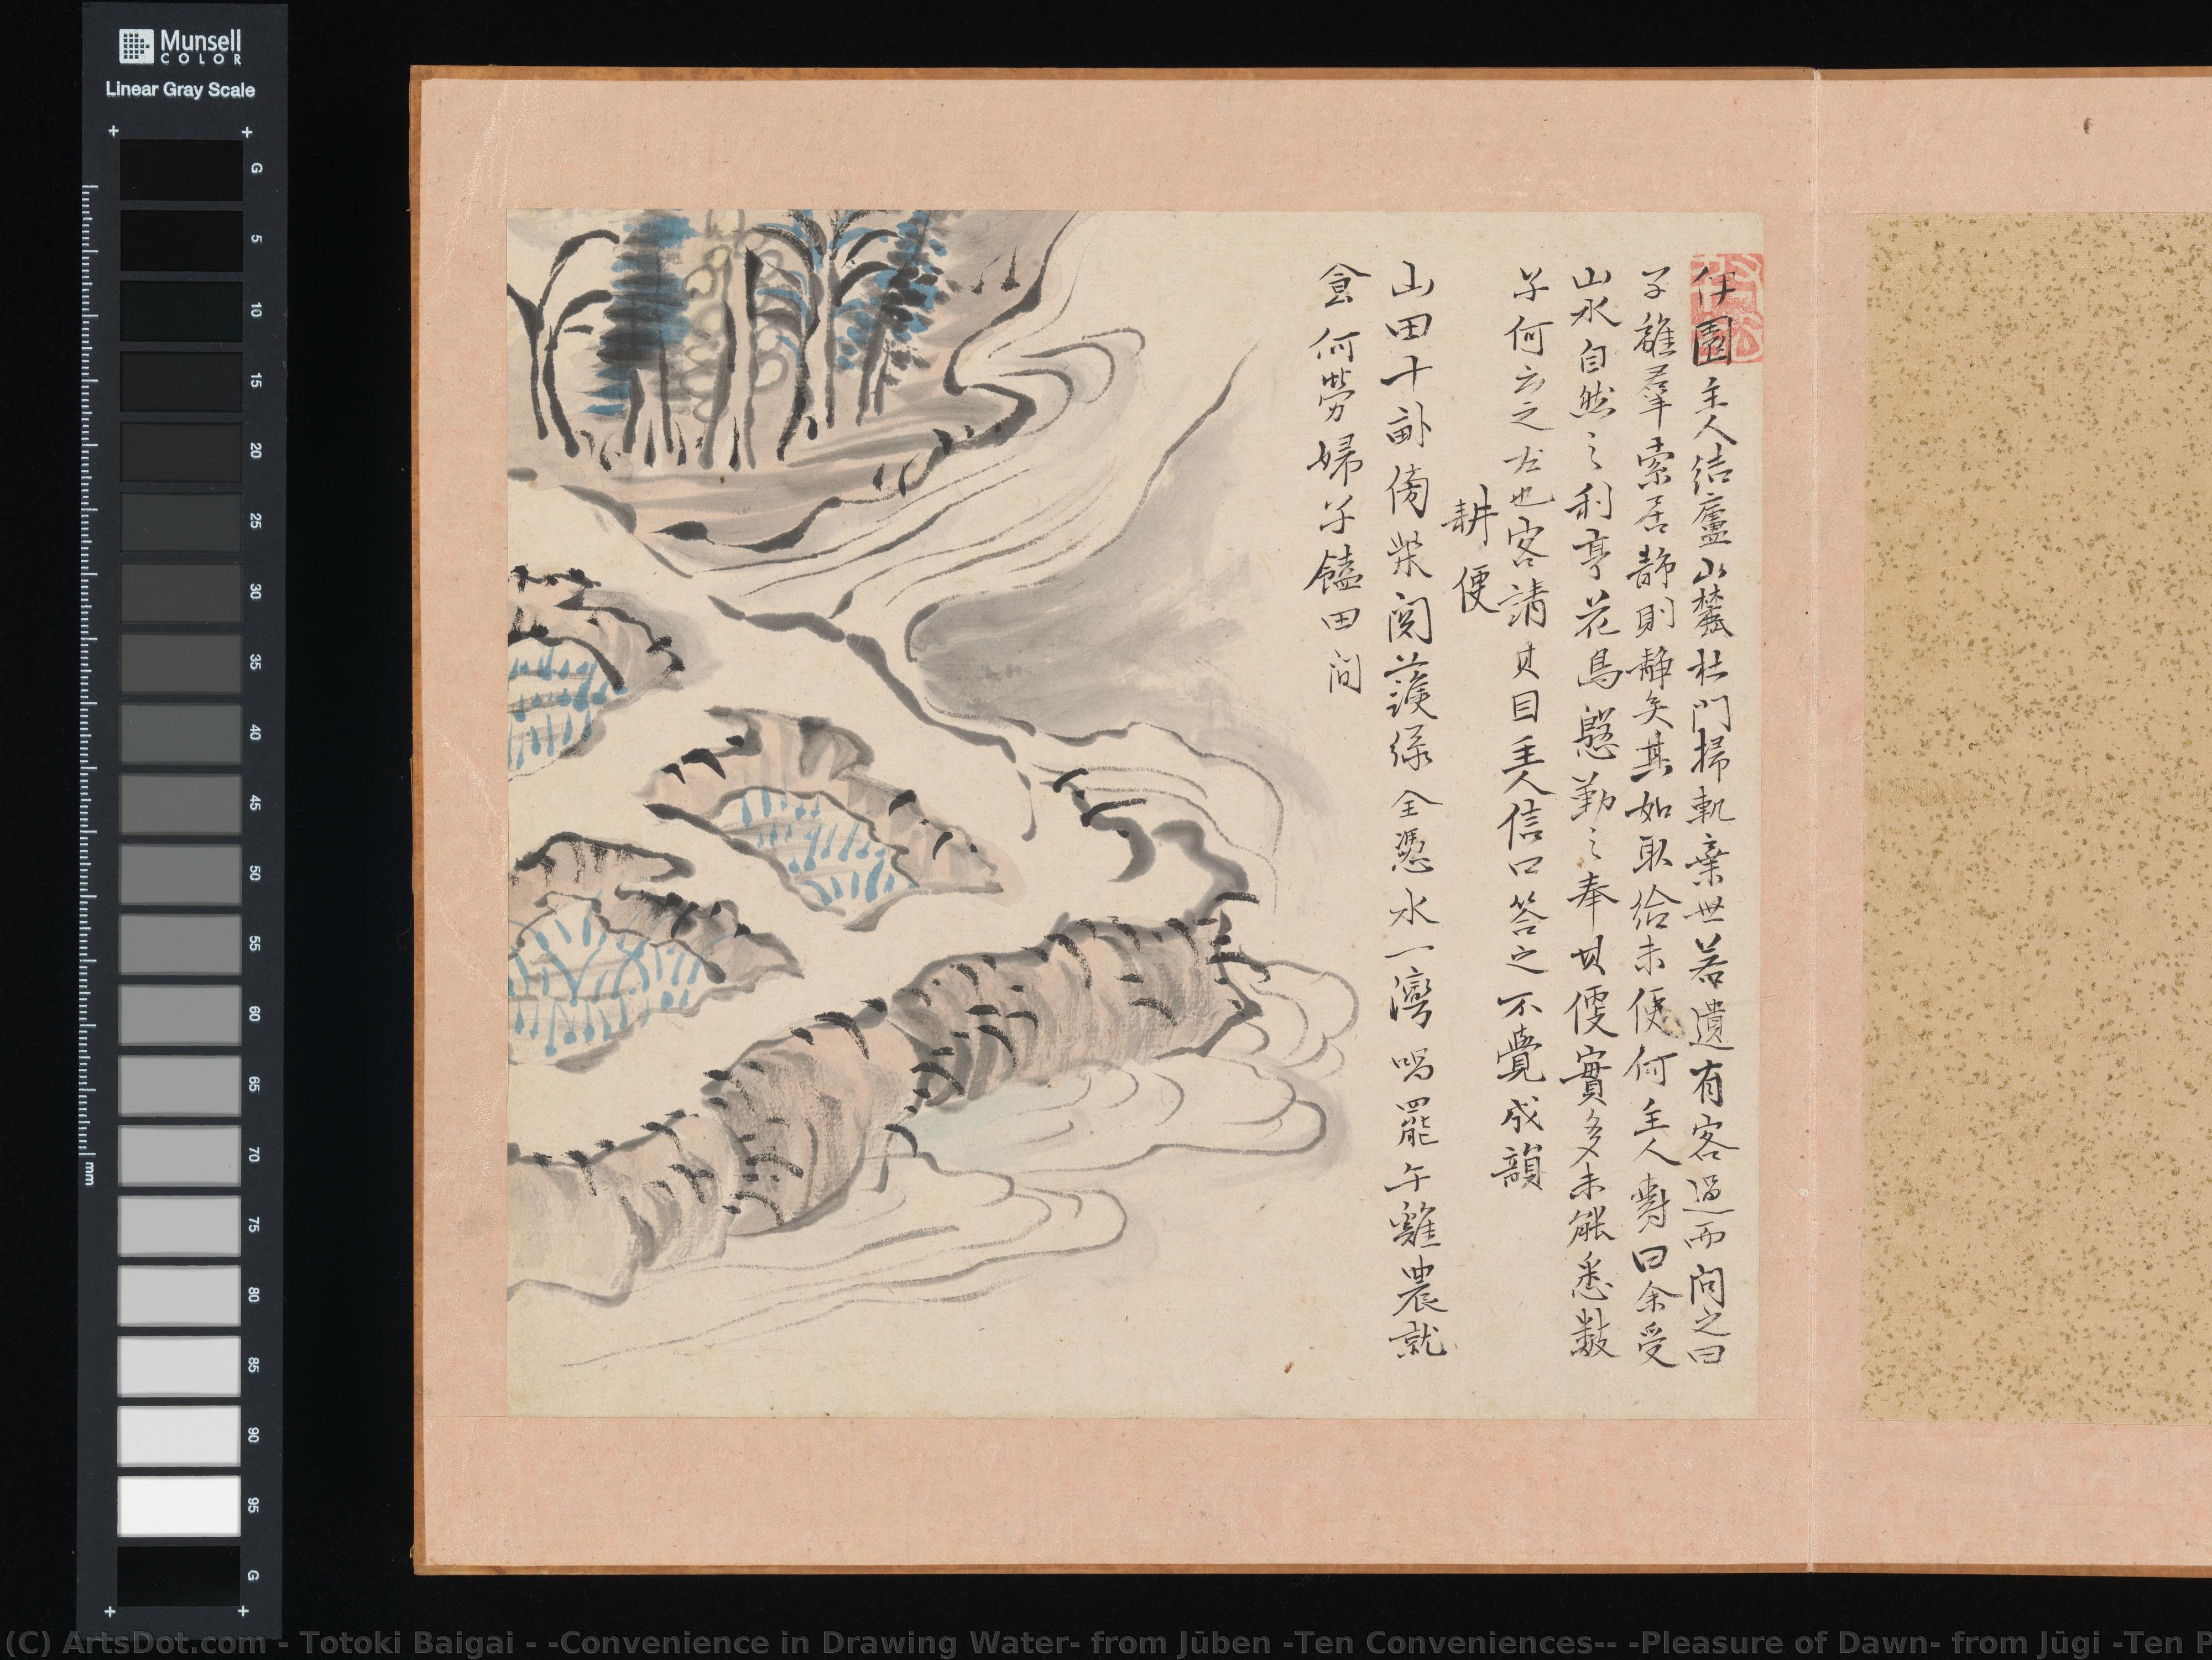 伊園主人結廬山麓杜門掃軌棄世若遺有客過而問之曰
子離羣索居靜則靜矣其如取給未便何主人對曰余受
山水自然之利享花鳥慇勤之奉其便實多未能悉數
子何云之左也客請其目主人信口答之不覺成韻
耕便
山田十畝傍柴関護綠全憑水一灣唱罷午雞農就
食何勞婦子饁田間
Munsell
COLOR
Linear Gray Scale
G
5
10
15
20
25
30
35
40
45
50
55
60
65
70
75
80
85
90
95
G
mm
(C) ArtsDot.com - Totoki Baigai - -Convenience in Drawing Water- from Jūben -Ten Conveniences-- -Pleasure of Dawn- from Jūgi -Ten P